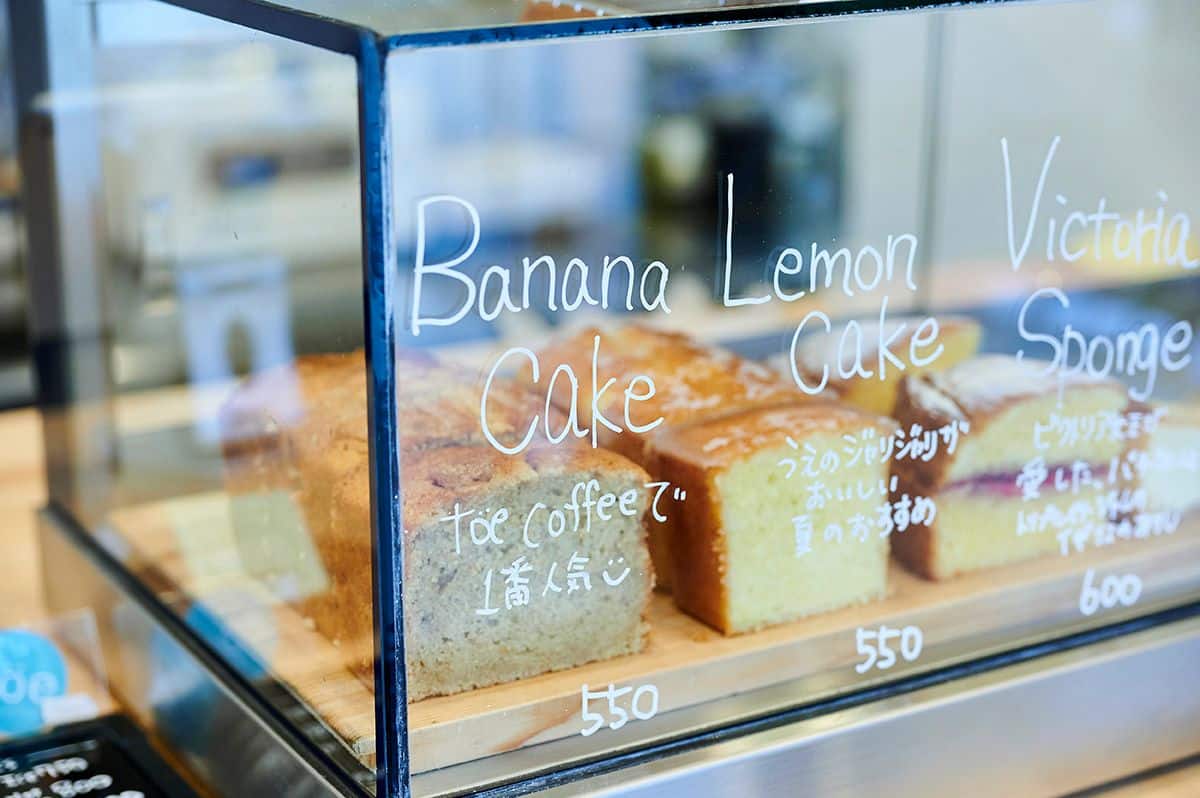 Banana
Cake
töe coffeeで
1番人気
550
Lemon
Cake
うえのジャリジャリが
おいしい
夏のおすすめ
550
Victoria
Sponge
愛した、
600
öe
800